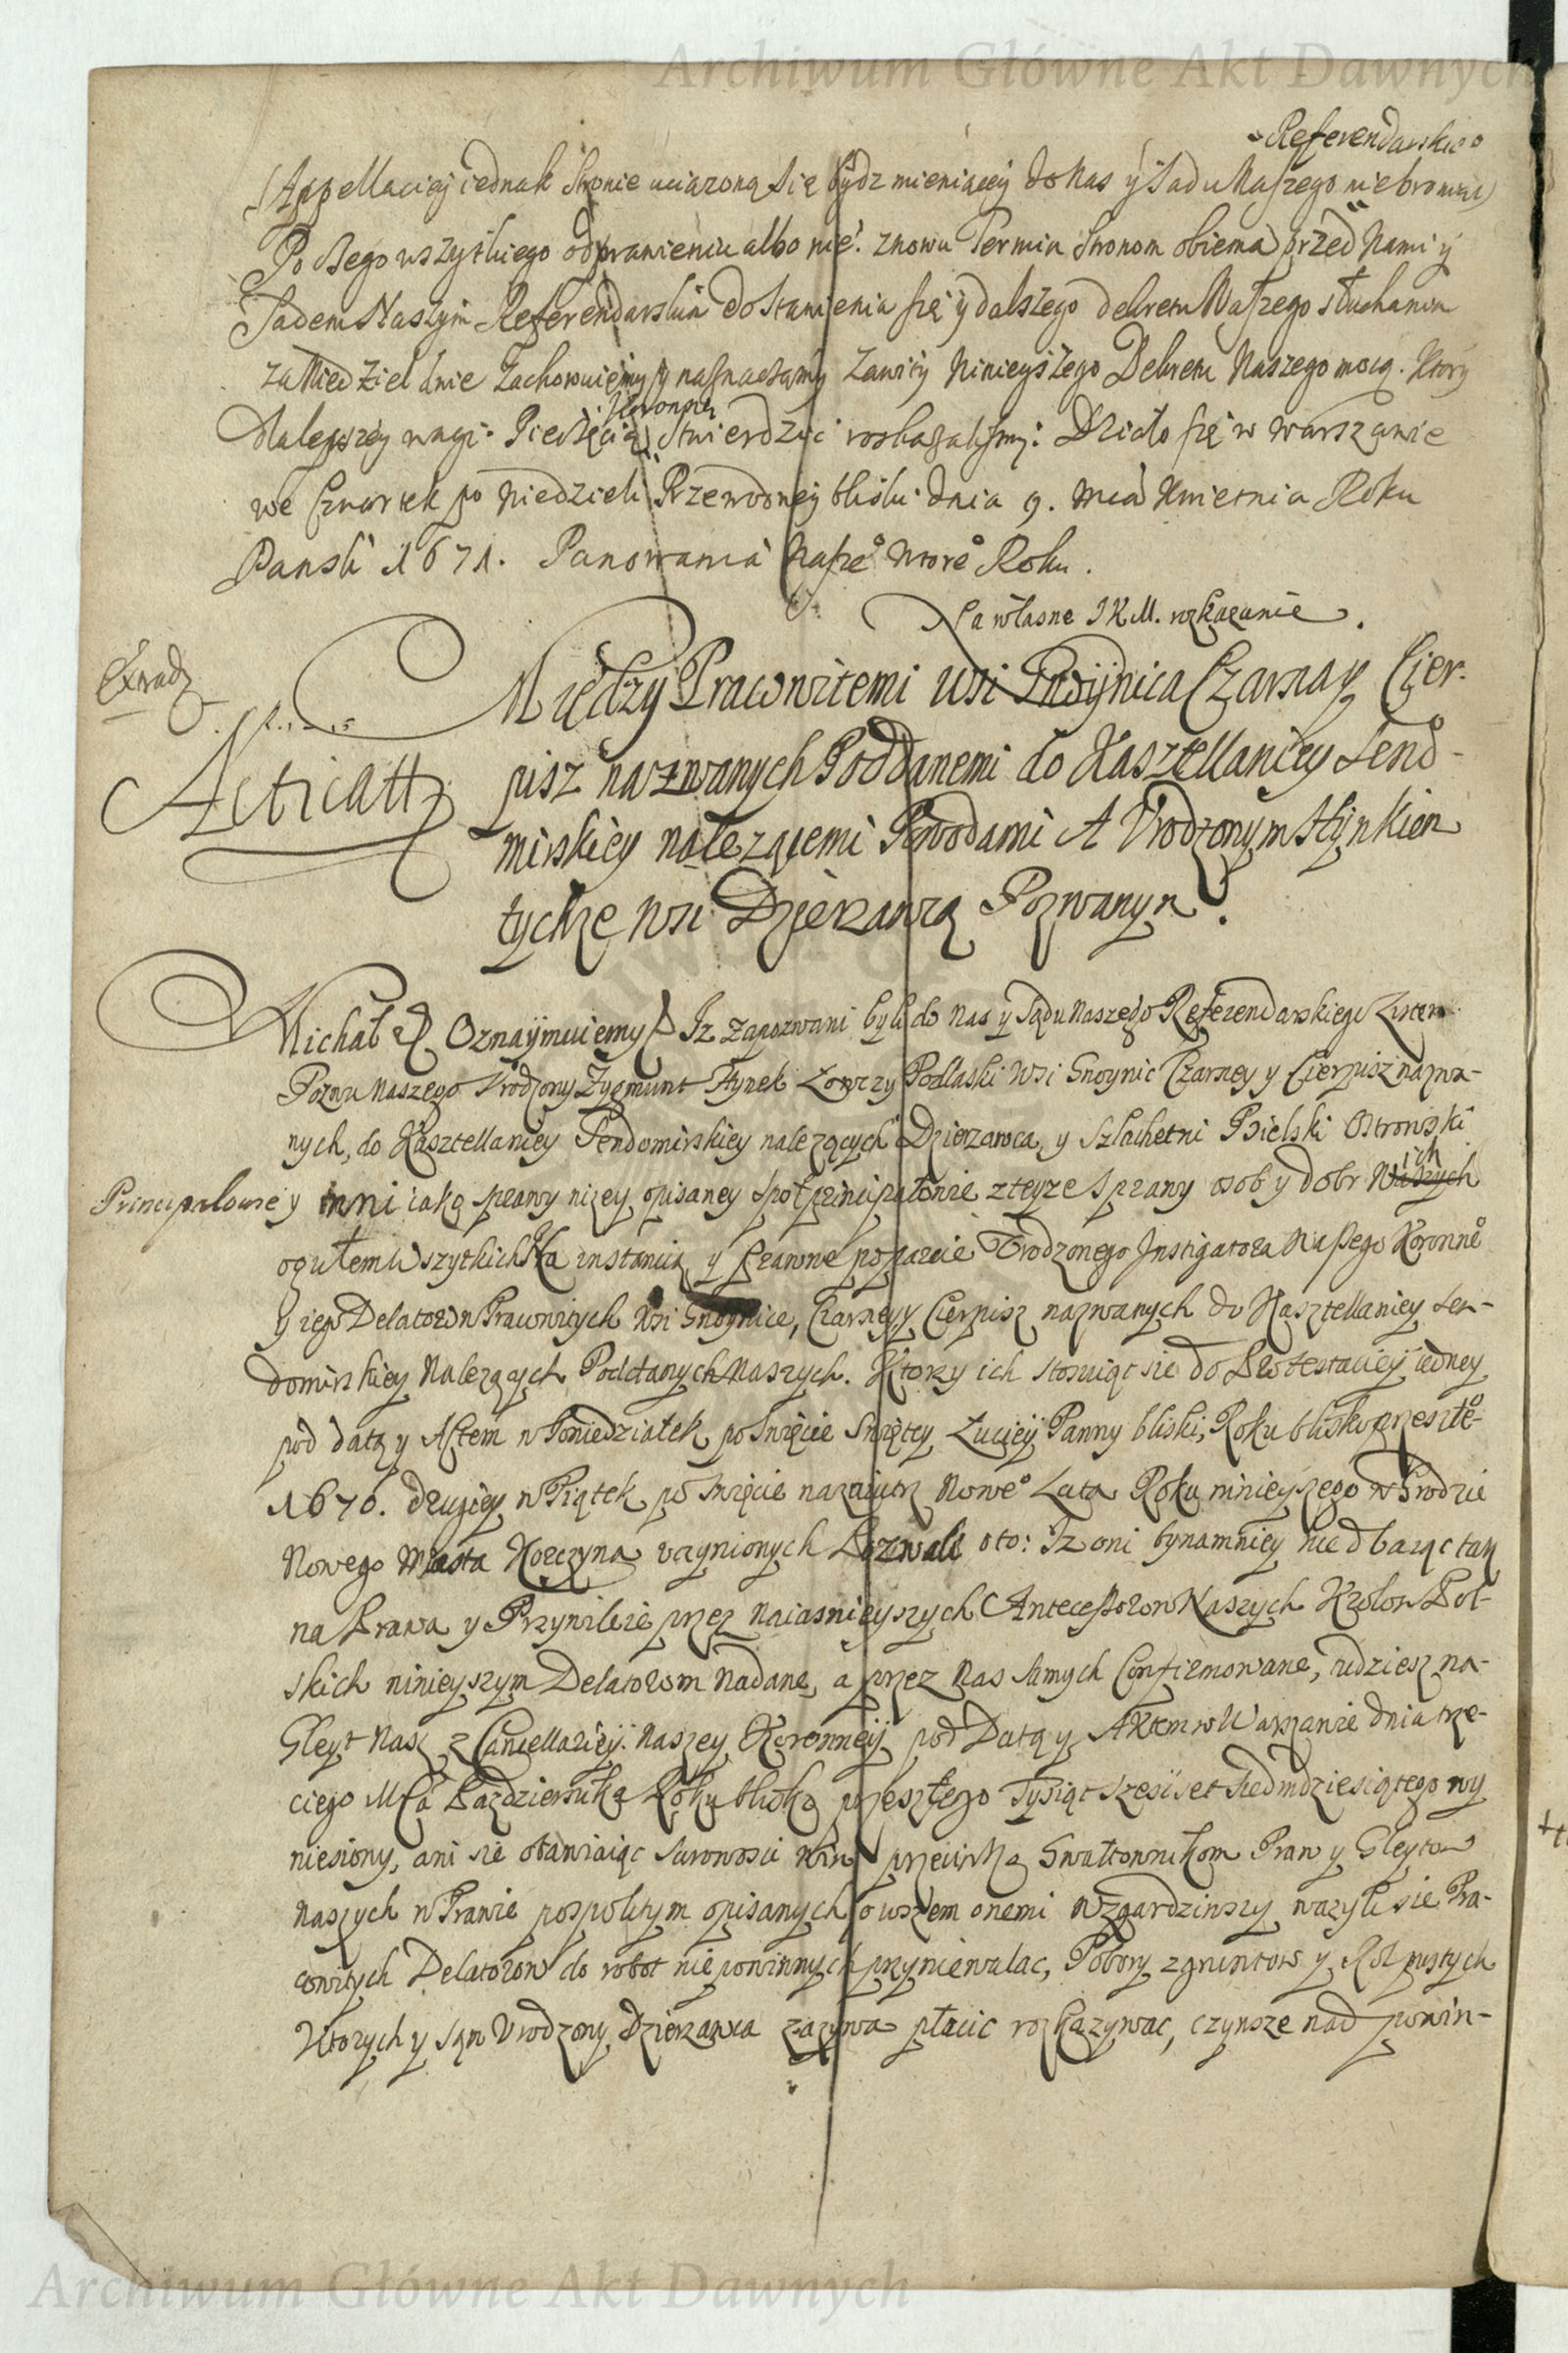 Archiwum Główne Akt Dawnych
Referendarskiego
(Appellaciey iednak stronie uciązoną się bydz mieniącey do Nas y Sądu Naszego nie broniąc)
Po tego wszystkiego odprawieniu albo nie: znowu Termin stronom obiema przed Nami y
Sadem Naszym Referendarskim do stawienia się y dalszego dekretu Naszego słuchania
za Niedziel dwie zachowuiemy y naznaczamy zawity Ninieyszego Dekretu Naszego mocą. Ktory
Koronną
dla lepszey wagi Pieczęcią stwierdzic roskazalismy: Działo się w Warszawie
we Czwartek po Niedzieli Przewodney bliski dnia 9. Mca Kwietnia Roku
Pansk 1671. Panowania Nasze° Wtore° Roku.
Na własne J K M. rozkazanie.
Extrad
Acticatt
Między Pracowitemi Wsi Gnoynica Czarna y Cier-
pisz nazwanych Poddanemi do Kasztellaniey Send°-
mirskiey nalezącemi Powodami A Urodzonym Hynkiem
tychze Wsi Dzierzawcą Pozwanym.
Michał &c Oznaymuiemy &c Iz zapozwani byli do Nas y Sądu Naszego Referendarskiego
Pozwu Naszego Urodzony Zygmunt Hynek Łowczy Podlaski Wsi Gnoynic Czarney y Cierpisz nazwa-
nych, do Kasztellaniey Sendomirskiey nalezących Dzierzawca, y Szlachetni Bielski Ostrowski
ich
Principalowie y inni iako sprawy nizey opisaney spolprincipałowie z teyze sprawy osob y dobr Waszych
ogułem wszytkich Na instancią y prawne poparcie Urodzonego Instigatora Naszego Koronne°
y iego Delatorow Pracowitych Wsi Gnoynice, Czarney y Cierpisz nazwanych do Kasztellaniey Sen-
domirskiey Nalezących Poddanych Naszych. Ktorzy ich stosuiąc sie do Protestaciey iedney
pod datą y Aktem w Poniedziałek po Swięcie Swiętey Luciey Panny bliski, Roku blisko przeszłe°
1670. drugiey w Piątek po Swięcie nazaiutrz Nowe° Lata Roku ninieyszego w Grodzie
Nowego Miasta Korczyna uczynionych Pozwali oto: Iz oni bynamniey nie dbaiąc tak
na Prawa y Przywileie przez Naiasnieyszych Antecessorow Naszych Krolow Pol-
skich ninieyszym Delatorom Nadane, a przez Nas samych Confirmowane, tudziesz na
Gleyt Nasz z Cancellariey Naszey Koronney pod Datą y Aktem w Warszawie dnia trze-
ciego Mca Pazdziernika Roku blisko przeszłego Tysiąc szescset siedmdziesiątego wy
niesiony, ani sie obawiaiąc surowosci Win przeciwko Gwałtownikom Praw y Gleytow
Naszych w Prawie pospolitym opisanych owszem onemi Wzgardziwszy wazyli sie Pra-
cowitych Delatorow do robot nie powinnych przyniewalac, Pobory z gruntow y Rol pustych
Ktorych y sąm Urodzony Dzierzawca zazywa płacic rozkazywac, czynsze nad powin-
Archiwum Główne Akt Dawnych